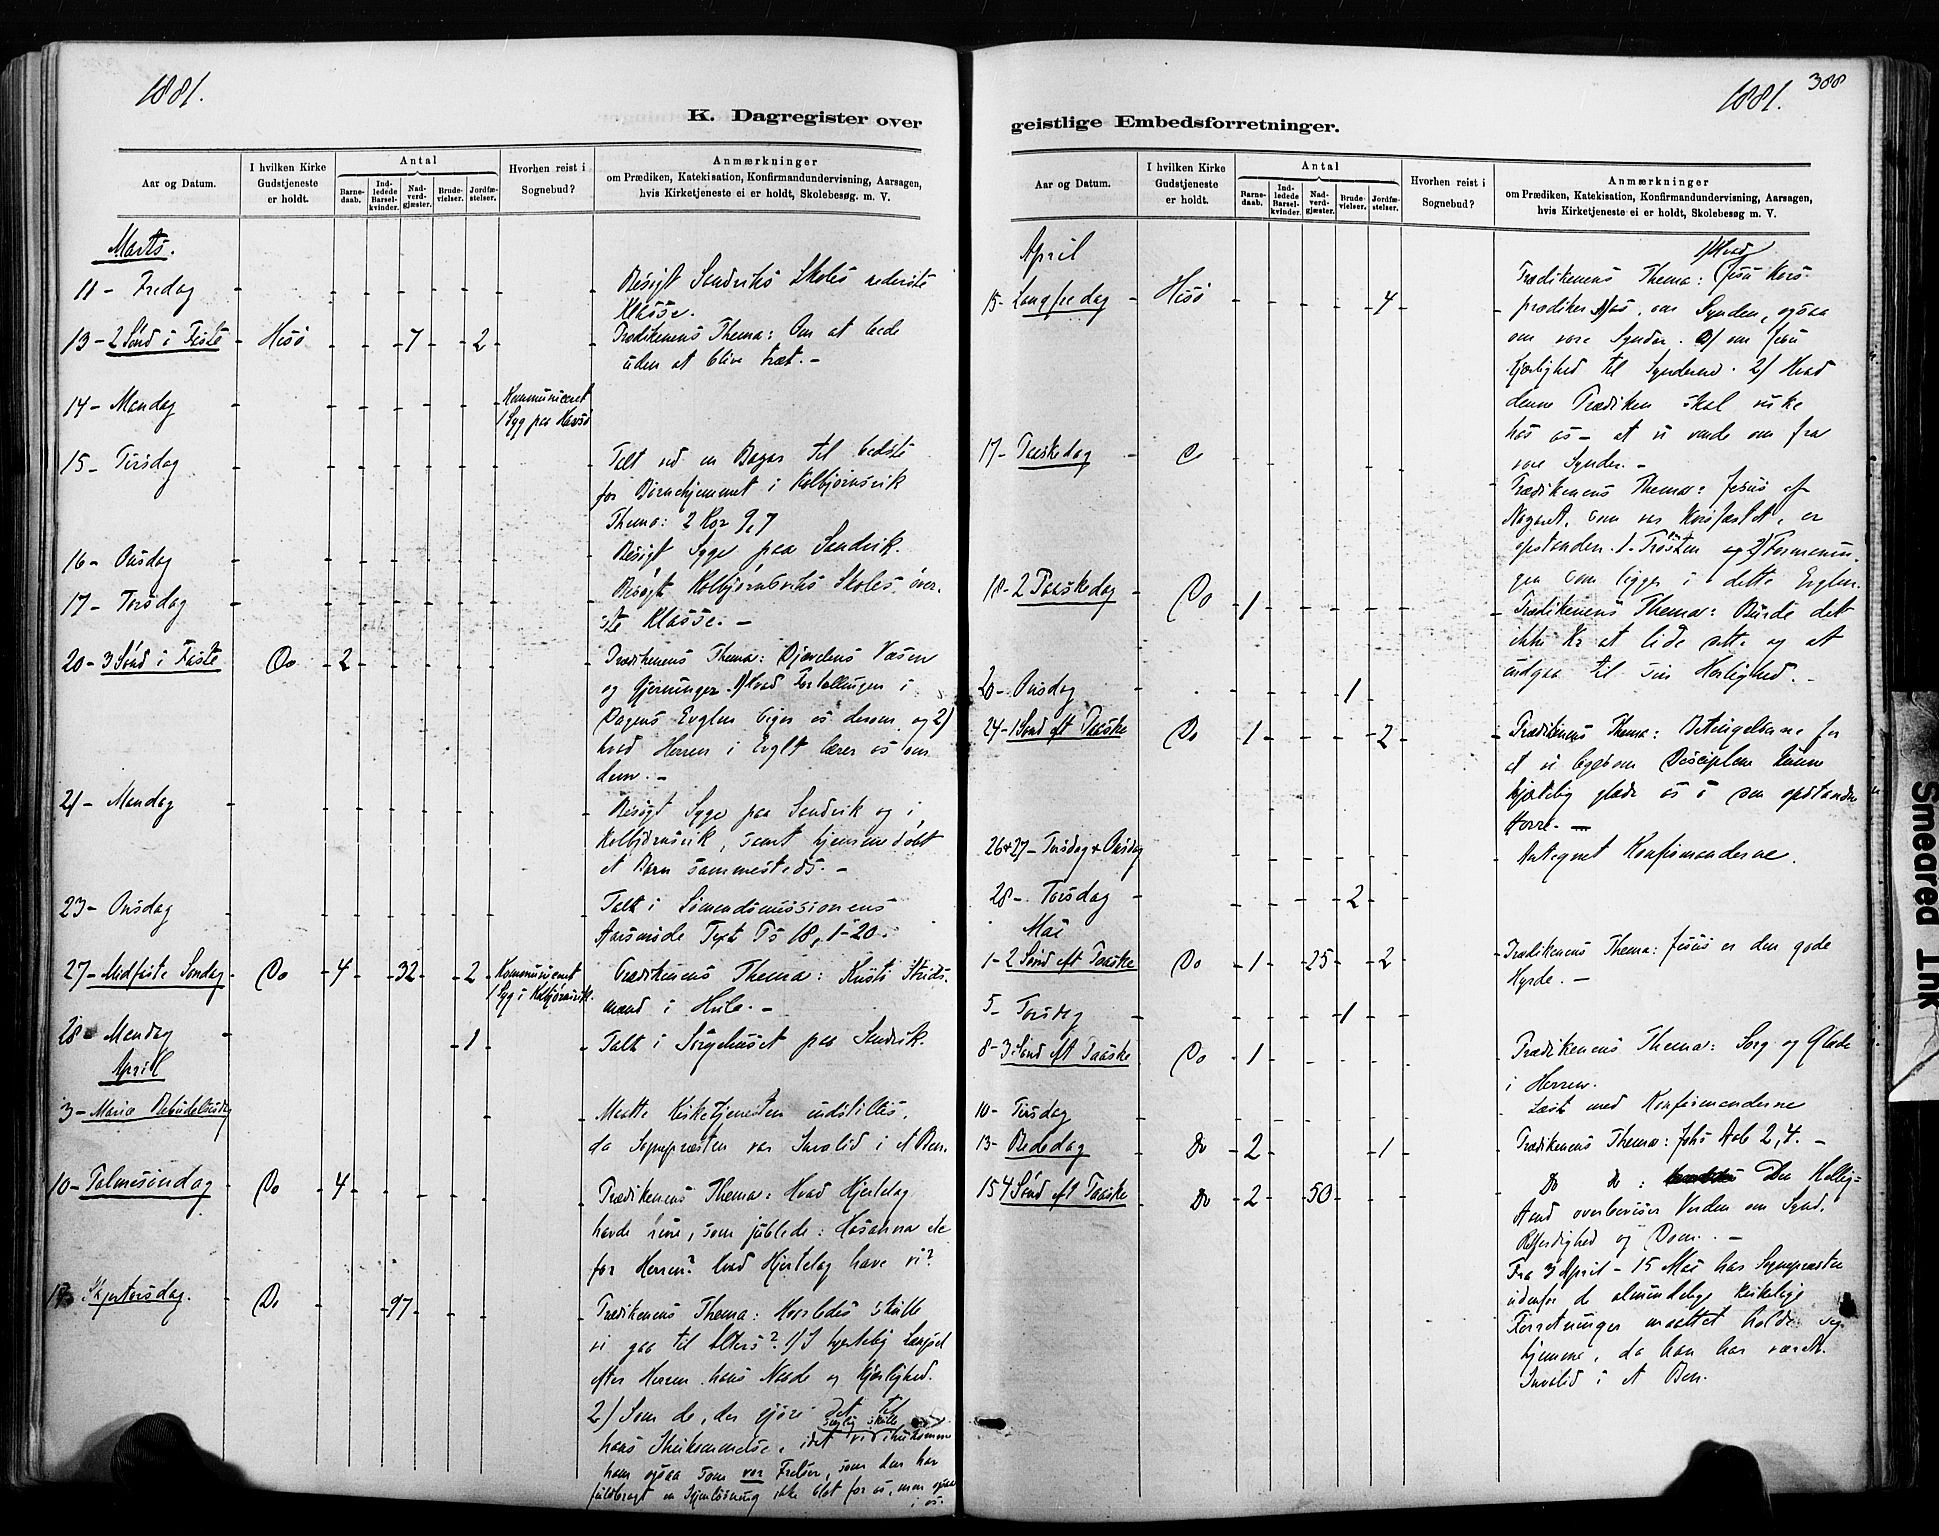 1881.
K. Dagregister over
Aar og Datum.
I hvilken Kirke Gudstjeneste er holdt.
Antal
Barnedaab.
Indledede Barselkvinder.
Nadverdgjæster.
Brudevielser.
Jordfæstelser.
Hvorhen reist i Sognebud?
Anmærkninger
om Prædiken, Katekisation, Konfirmandundervisning, Aarsagen,
hvis Kirketjeneste ei er holdt, Skolebesøg. m. V.
Marts.
11 - Fredag - - - - - - - Besøgt Sandviks Skoles nederste
Klasse.
13 - 2 Sønd i Faste - Hisø - - - 7 - - 2 - - Prædikenens Thema: Om at bede
uden at blive træt. -
14 - Mandag - - - - - - Kommuniceret
1 Syg paa Havsø
15 - Tirsdag - - - - - - - - Talt ved en Bazar til bedste
for Børnehjemmet i Kolbjørnsvik
Thema: 2 Kor 9,7
16 - Onsdag - - - - - - - - Besøgt Syge paa Sandvik.
17 - Torsdag - - - - - - - - Besøgt Kolbjørnsviks Skoles øver-
ste Klasse. -
20 - 3 Sønd i Faste - Do - 2 - - - - - - Prædikenens Thema: Djævelens Væsen
og Gjerninger. 1) Hvad Fortællingen i
Dagens Evglm siger os derom, og 2)
hvad Herren i Evglt lærer os om
dem. -
21 - Mandag - - - - - - - - Besøgt Syge paa Sandvik og i
Kolbjørnsvik, samt hjemmedøbt
et Barn sammesteds. -
23 - Onsdag - - - - - - - - Talt i Sømandsmissionens
Aarsmøde Text Ps 18, 1-20.
27 - Midfaste Søndag - Do - 4 - - 32 - - 2 - Kommuniceret
1 Syg i Kolbjørnsvik. Prædikenens Thema: Kristi Strids-
mænd i Hvile. -
28 - Mandag - - 1 - Talt i Sørgehuset paa Sandvik.
April
3 - Mariæ Bebudelsesdag - - Maatte Kirketjenesten indstilles,
da Sognepræsten var Invalid i et Ben.
10 - Palmesøndag - Do - 4 - - - - - - Prædikenens Thema: Hvad Hjertelag
havde disse, som jublede: Hosanna etc
for Herren? hvad Hjertelag have vi?
Skjertorsdag. - Do - - 97 - - - - Prædikenens Thema: Hvorledes skulle
vi gaa til Alters? 1) I hjertelig Længsel
efter Herren hans Naade og Kjærlighed.
2) Som de, der gjøre det til
hans Ihukommelse, idet vi
særlig skulle ihukomme
ham ogsaa som vor Frelser, som den har
fuldbragt en Gjenløsning ikke blot for os, men ogsaa
i os.
1881.
388
geistlige Embedsforretninger.
Aar og Datum.
I hvilken Kirke Gudstjeneste er holdt.
Antal
Barnedaab.
Indledede Barselkvinder.
Nadverdgjæster.
Brudevielser.
Jordfæstelser.
Hvorhen reist i Sognebud?
Anmærkninger
om Prædiken, Katekisation, Konfirmandundervisning, Aarsagen,
hvis Kirketjeneste ei er holdt, Skolebesøg m. V.
April
15 - Langfredag - Hisø - - - - - 4 - - Prædikenens Thema: 1) Hvad Jesu Kors
prædiker os om Synden, ogsaa
om vore Synder. om Jesu
Kjærlighed til Synderne. 2) Hvad
denne Prædiken skal virke
hos os - at vi vende om fra
vore Synder. -
17 - Paaskedag - Do - - - - - - - Prædikenens Thema: Jesus af
Nazaret, som var Korsfæstet, er
opstanden. 1. Trøsten og 2) Formanin-
gen som ligger i dette Evglm.
18 - 2 Paaskedag - Do - 1 - - - - - - Prædikenens Thema: Burde det
ikke Kr at lide dette og at
indgaa til sin Herlighed. -
20 - Onsdag - - - - 1 - - -
24 - 1 Sønd eft Paaske - Do - 1 - - - - 2 - - Prædikenens Thema: Betingelserne for
at vi ligesom Disciplene kunne
hjertelig glæde os i den opstandne
Herre. -
26 + 27 - Tirsdag + Onsdag - - - - - - Antegnet Konfirmanderne.
28 - Torsdag - - - - - 2 - - -
Mai
1 - 2 Sønd eft Paaske - Do - 1 - - 25 - - 2 - - Prædikenens Thema: Jesus er den gode
Hyrde. -
5 - Torsdag - - - - - 1 - - -
8 - 3 Sønd eft Paaske - Do - 1 - - - - - - Prædikenens Thema: Sorg og Glæde
i Herren.
10 - Tirsdag - - - - - - - Læst med Konfirmanderne
13 - Bededag - Do - 2 - - - - 1 - - Prædikenens Thema: Johs Aab 2,4. -
15 4 Sønd eft Paaske - Do - 2 - - 50 - - - - Do Do: Den Hellig-
Aand overbeviser Verden om Synd,
Retfærdighed og Dom. -
Fra 3 April - 15 Mai har Sognepræsten
udenfor de almindelige kirkelige
Forretninger maattet holde sig
hjemme, da han har været
Invalid i et Ben.
Smeared Ink